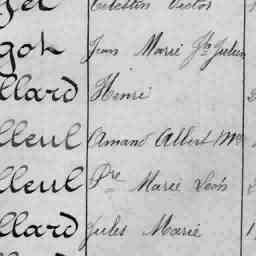 Célestin Victor
got Jean Marie Jh Julien
llard Henri
lleul Amand Albert Me
lleul Pre Marie Léon
llard Jules Marie